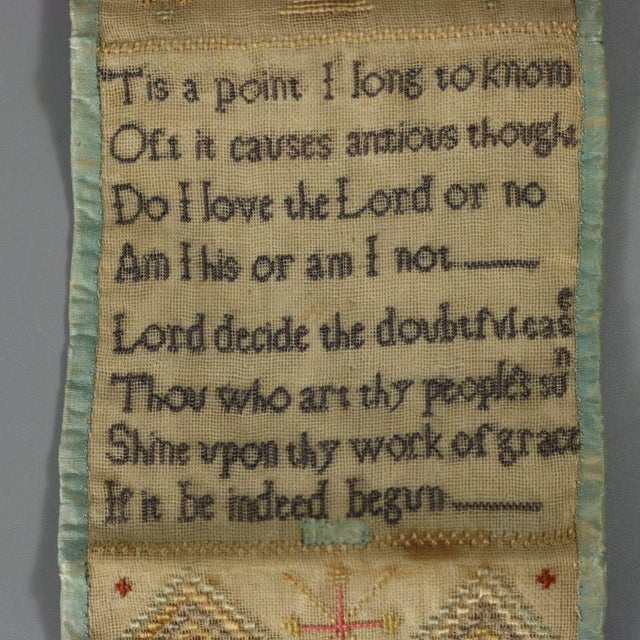 'Tis a point I long to know
Oft it causes anxious thought
Do I love the Lord or no
Am I his or am I not
Lord decide the doubtful case
Thou who art thy people's sun
Shine upon thy work of grace
If it be indeed begun